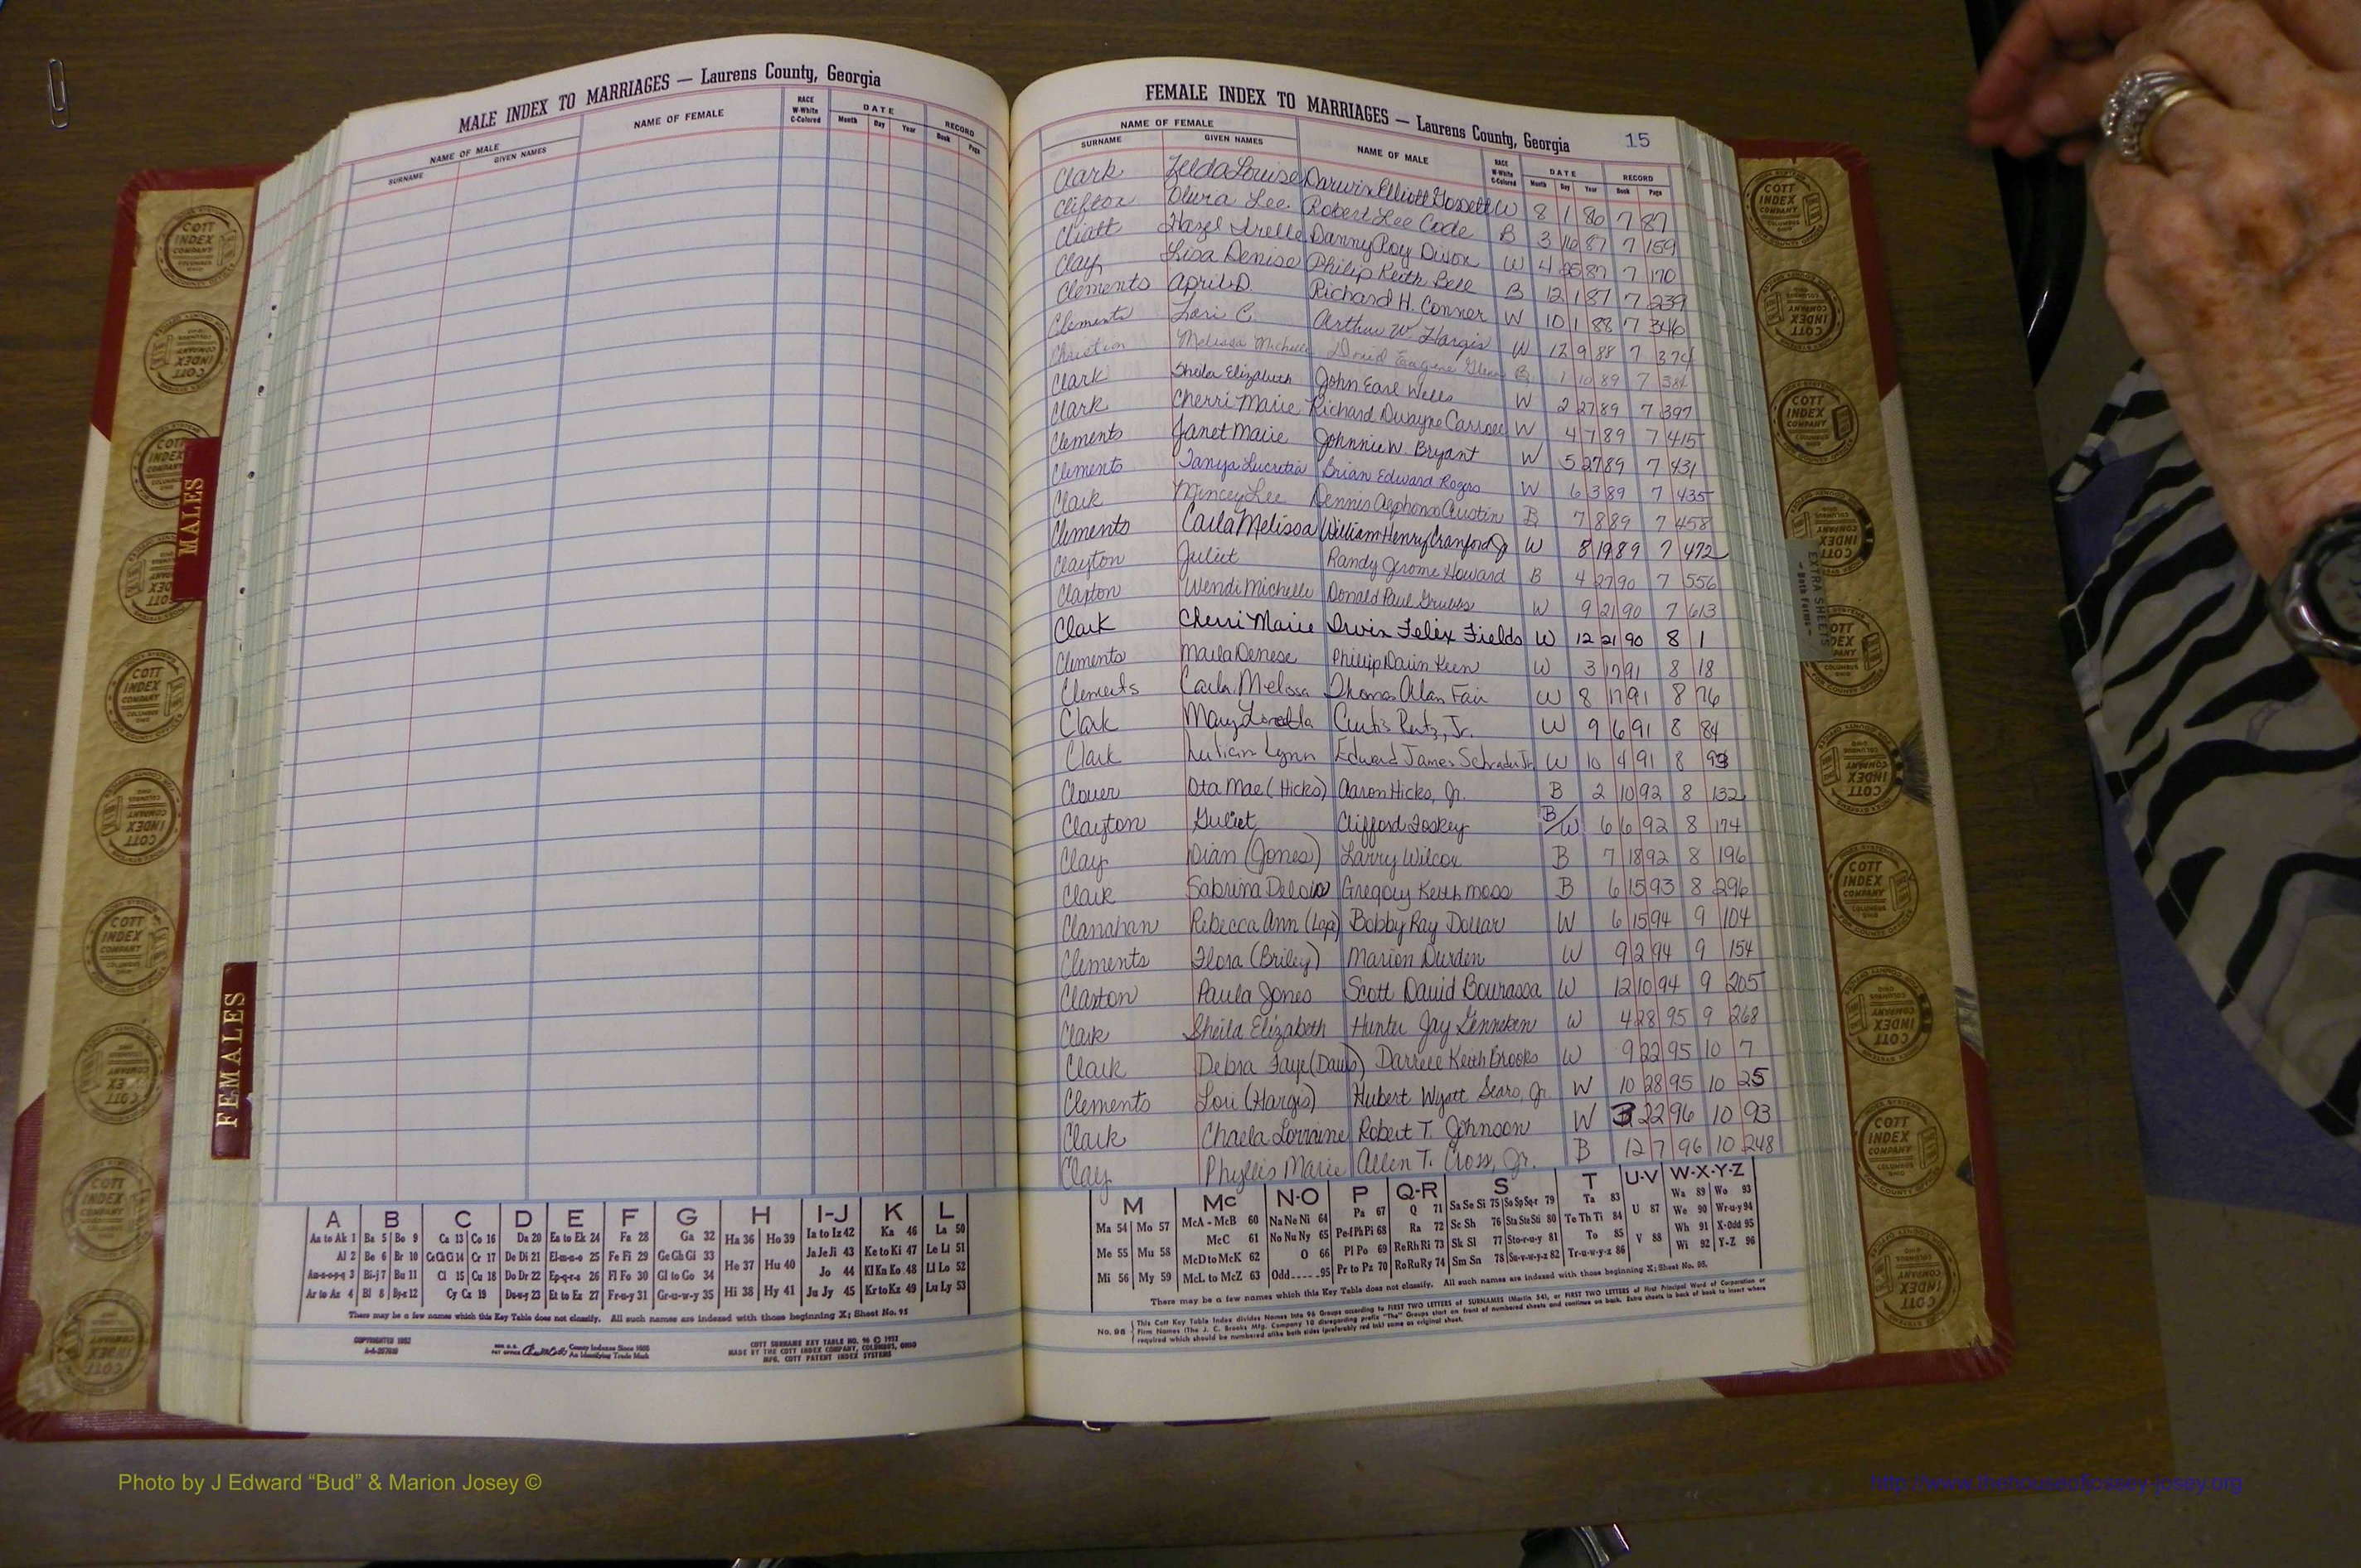 MALE INDEX TO MARRIAGES — Laurens County, Georgia
NAME OF MALE
SURNAME GIVEN NAMES
NAME OF FEMALE
RACE W-White C-Colored
DATE
Month Day Year
RECORD
Book Page
MALES
FEMALES
FEMALE INDEX TO MARRIAGES — Laurens County, Georgia 15
NAME OF FEMALE
SURNAME GIVEN NAMES
NAME OF MALE
RACE W-White C-Colored
DATE
Month Day Year
RECORD
Book Page
Clark Zelda Louise Darwin Elliott W 8 1 86 7 87
Clifton Lee Robert Lee Code B 3 87 7 159
Hazel Danny Roy Dixon W 4 25 87 7 170
Clay Lisa Denise Philip Keith Bell B 12 1 87 7 239
Clements April D. Richard H. Conner W 10 1 88 7 346
Clements Lori C. Arthur W. Hargis W 12 9 88 7 374
Christian Melissa Michelle David Eugene B 1 10 89 7 384
Clark Sheila Elizabeth John Earl Wells W 2 27 89 7 397
Clark Cherri Marie Richard Dwayne Carroll W 4 7 89 7 415
Clements Janet Marie Johnnie W. Bryant W 5 27 89 7 431
Clements Tanya Lucretia Brian Edward Rogers W 6 3 89 7 435
Clark Mincey Lee Dennis Alphonso Austin B 7 8 89 7 458
Clements Carla Melissa William Henry Cranford Jr W 8 19 89 7 472
Clayton Juliet Randy Jerome Howard B 4 27 90 7 556
Claxton Wendi Michelle Donald Paul Grubbs W 9 21 90 7 613
Clark Cherri Marie Irvin Felix Fields W 12 21 90 8 1
Clements Marla Denese Phillip Keen W 3 17 91 8 18
Clements Carla Melissa Thomas Alan Fair W 8 17 91 8 76
Clark Mary Loretta Curtis Jr. W 9 6 91 8 84
Clark Lynn Edward James Schrader Jr W 10 4 91 8 93
Clover Ota Mae (Hicks) Aaron Hicks, Jr. B 2 10 92 8 132
Clayton Juliet Clifford Toskey B/W 6 6 92 8 174
Clay Dian (Jones) Larry Wilcox B 7 18 92 8 196
Clark Sabrina Delois Gregory Keith Moss B 6 15 93 8 296
Clanahan Rebecca Ann Bobby Ray Dollar W 6 15 94 9 104
Clements Flora (Briley) Marion Durden W 9 2 94 9 154
Claxton Paula Jones Scott David Bourassa W 12 10 94 9 205
Clark Sheila Elizabeth Hunter Jay Genneken W 4 28 95 9 268
Clark Debra Faye (Davis) Darrell Keith Brooks W 9 22 95 10 7
Clements Lori (Hargis) Hubert Wyatt Sears, Jr W 10 28 95 10 25
Clark Chaela Lorraine Robert T. Johnson W 3 22 96 10 93
Clay Phyllis Marie Allen T. Cross, Jr. B 12 7 96 10 248
EXTRA SHEETS
A B C D E F G H I-J K L
Aa to Ak 1 Ba 5 Bo 9 Ca 13 Co 16 Da 20 Ea to Ek 24 Fa 28 Ga 32 Ha 36 Ho 39 Ia to Iz 42 Ka 46 La 50
Al 2 Be 6 Br 10 Ce Ch Ci 14 Cr 17 De Di 21 El-m-n-o 25 Fe Fi 29 Ge Gh Gi 33 He 37 Hu 40 Ja Je Ji 43 Ke to Ki 47 Le Li 51
Am-n-o-p-q 3 Bi-j 7 Bu 11 Cl 15 Cu 18 Do Dr 22 Ep-q-r-s 26 Fl Fo 30 Gl to Go 34 Jo 44 Kl Kn Ko 48 Ll Lo 52
Ar to Az 4 Bl 8 By-z 12 Cy Cz 19 Du-w-y 23 Et to Ez 27 Fr-u-y 31 Gr-u-w-y 35 Hi 38 Hy 41 Ju Jy 45 Kr to Kz 49 Lu Ly 53
There may be a few names which this Key Table does not classify. All such names are indexed with those beginning X; Sheet No. 95
COPYRIGHTED 1952
County Indexes Since 1888
An Identifying Trade Mark
COTT SURNAME KEY TABLE NO. 96 © 1952
MADE BY THE COTT INDEX COMPANY, COLUMBUS, OHIO
MFG. COTT PATENT INDEX SYSTEMS
M Mc N-O P Q-R S T U-V W-X-Y-Z
Ma 54 Mo 57 McA - McB 60 Na Ne Ni 64 Pa 67 Q 71 Sa Se Si 75 So Sp Sq-r 79 Ta 83 U 87 Wa 89 Wo 93
Me 55 Mu 58 McC 61 No Nu Ny 65 Pe-f Ph Pi 68 Ra 72 Sc Sh 76 Sta Ste Sti 80 Te Th Ti 84 We 90 Wr-u-y 94
McD to McK 62 O 66 Pl Po 69 Re Rh Ri 73 Sk Sl 77 Sto-r-u-y 81 To 85 V 88 Wh 91 X-Odd 95
Mi 56 My 59 McL to McZ 63 Odd-----95 Pr to Pz 70 Ro Ru Ry 74 Sm Sn 78 Su-v-w-y-z 82 Tr-u-w-y-z 86 Wi 92 Y-Z 96
There may be a few names which this Key Table does not classify. All such names are indexed with those beginning X; Sheet No. 95.
No. 96
This Cott Key Table Index divides Names into 96 Groups according to FIRST TWO LETTERS of SURNAMES (Martin 54), or FIRST TWO LETTERS of First Principal Word of Corporation or
Firm Names (The J. C. Brooks Mfg. Company 10 disregarding prefix "The" Groups start on front of numbered sheets and continue on back. Extra sheets in back of book to insert where
required which should be numbered alike both sides (preferably red ink) same as original sheet.
COTT INDEX COMPANY COLUMBUS OHIO
Photo by J Edward “Bud” & Marion Josey ©
http://www.thehouseofjossey-josey.org